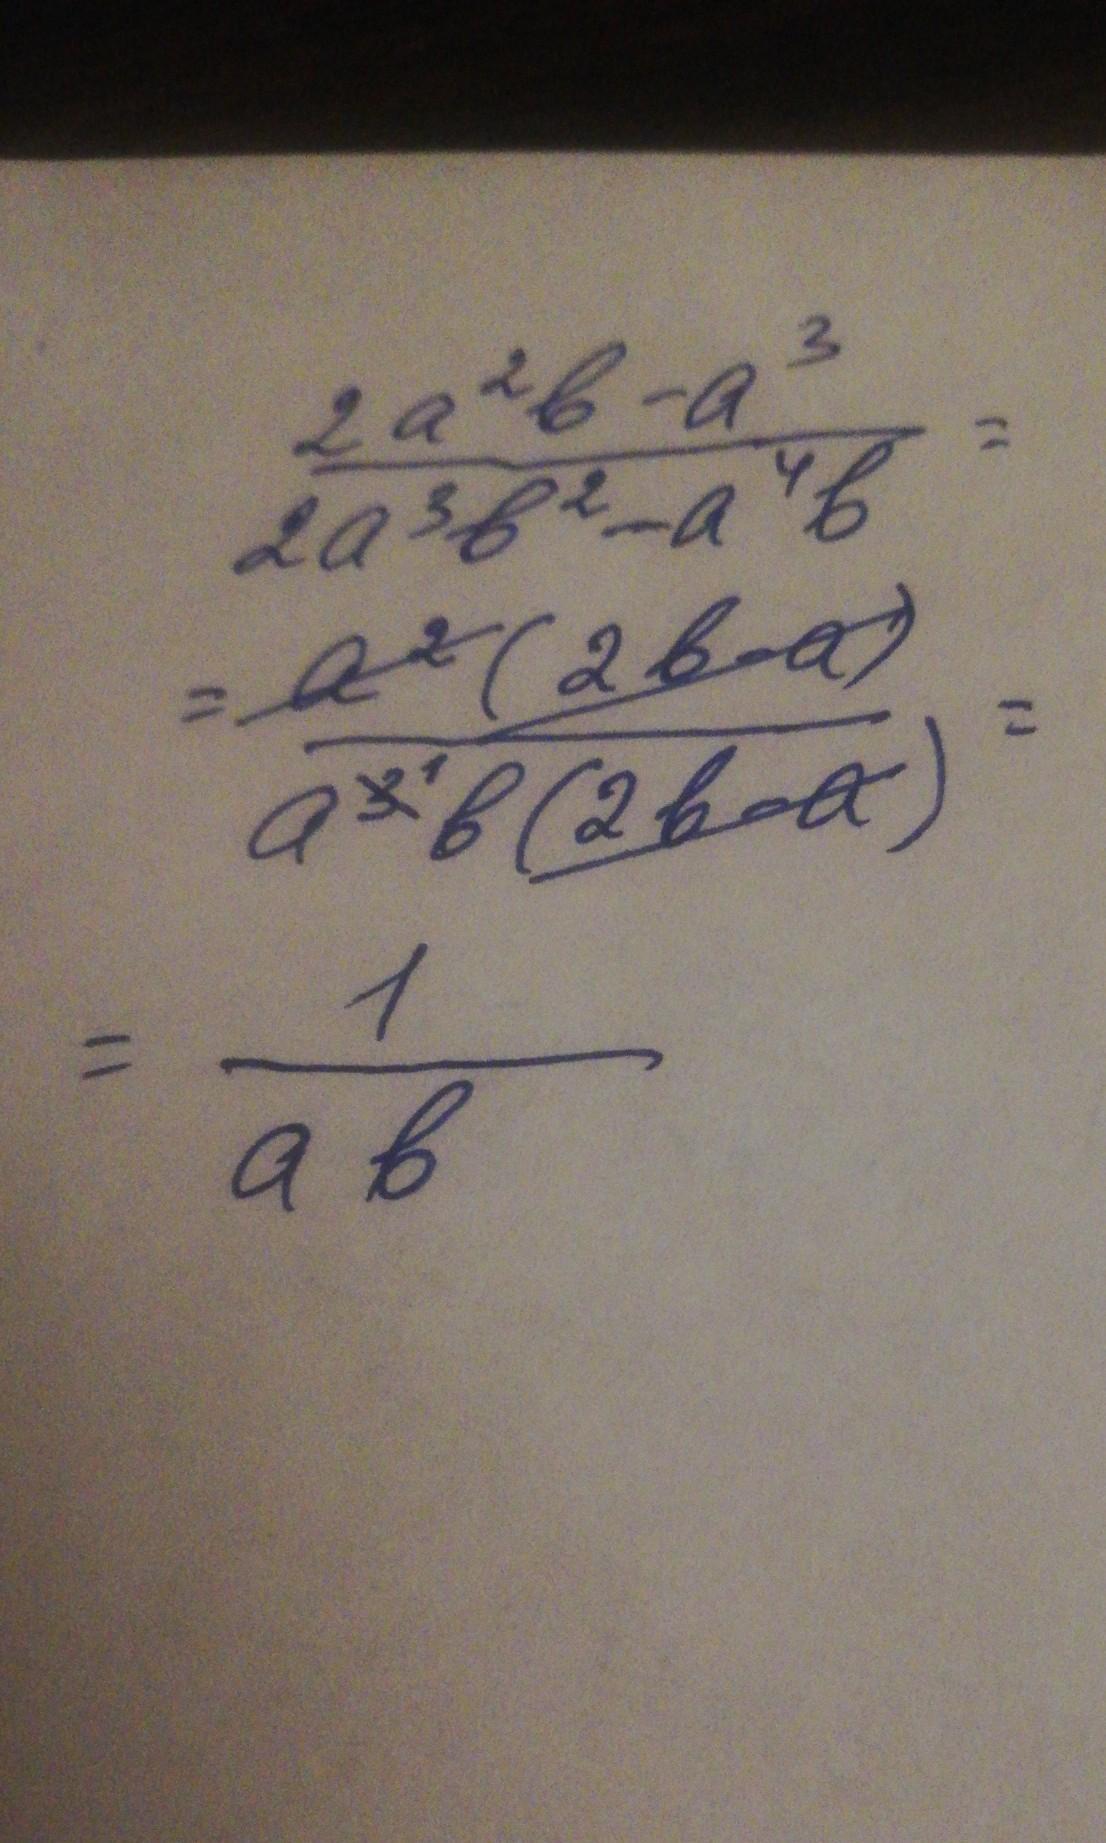 2a²b - a³ =
2a³b² - a⁴b
= a²(2b - a) =
a³¹b(2b - a)
= 1
ab